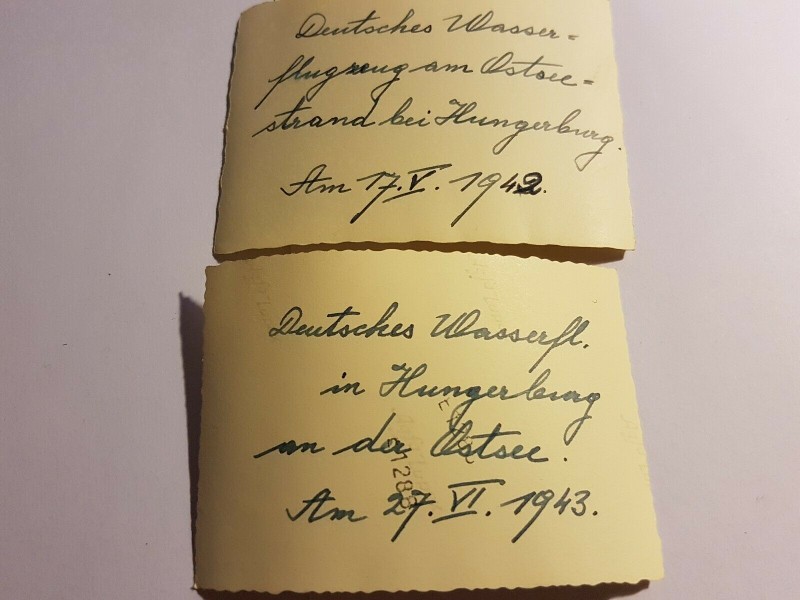 Deutsches Wasser=
flugzeug am Ostsee=
strand bei Hungerburg.
Am 17.V. 1942.
Deutsches Wasserfl.
in Hungerburg
an der Ostsee.
Am 27.VI. 1943.